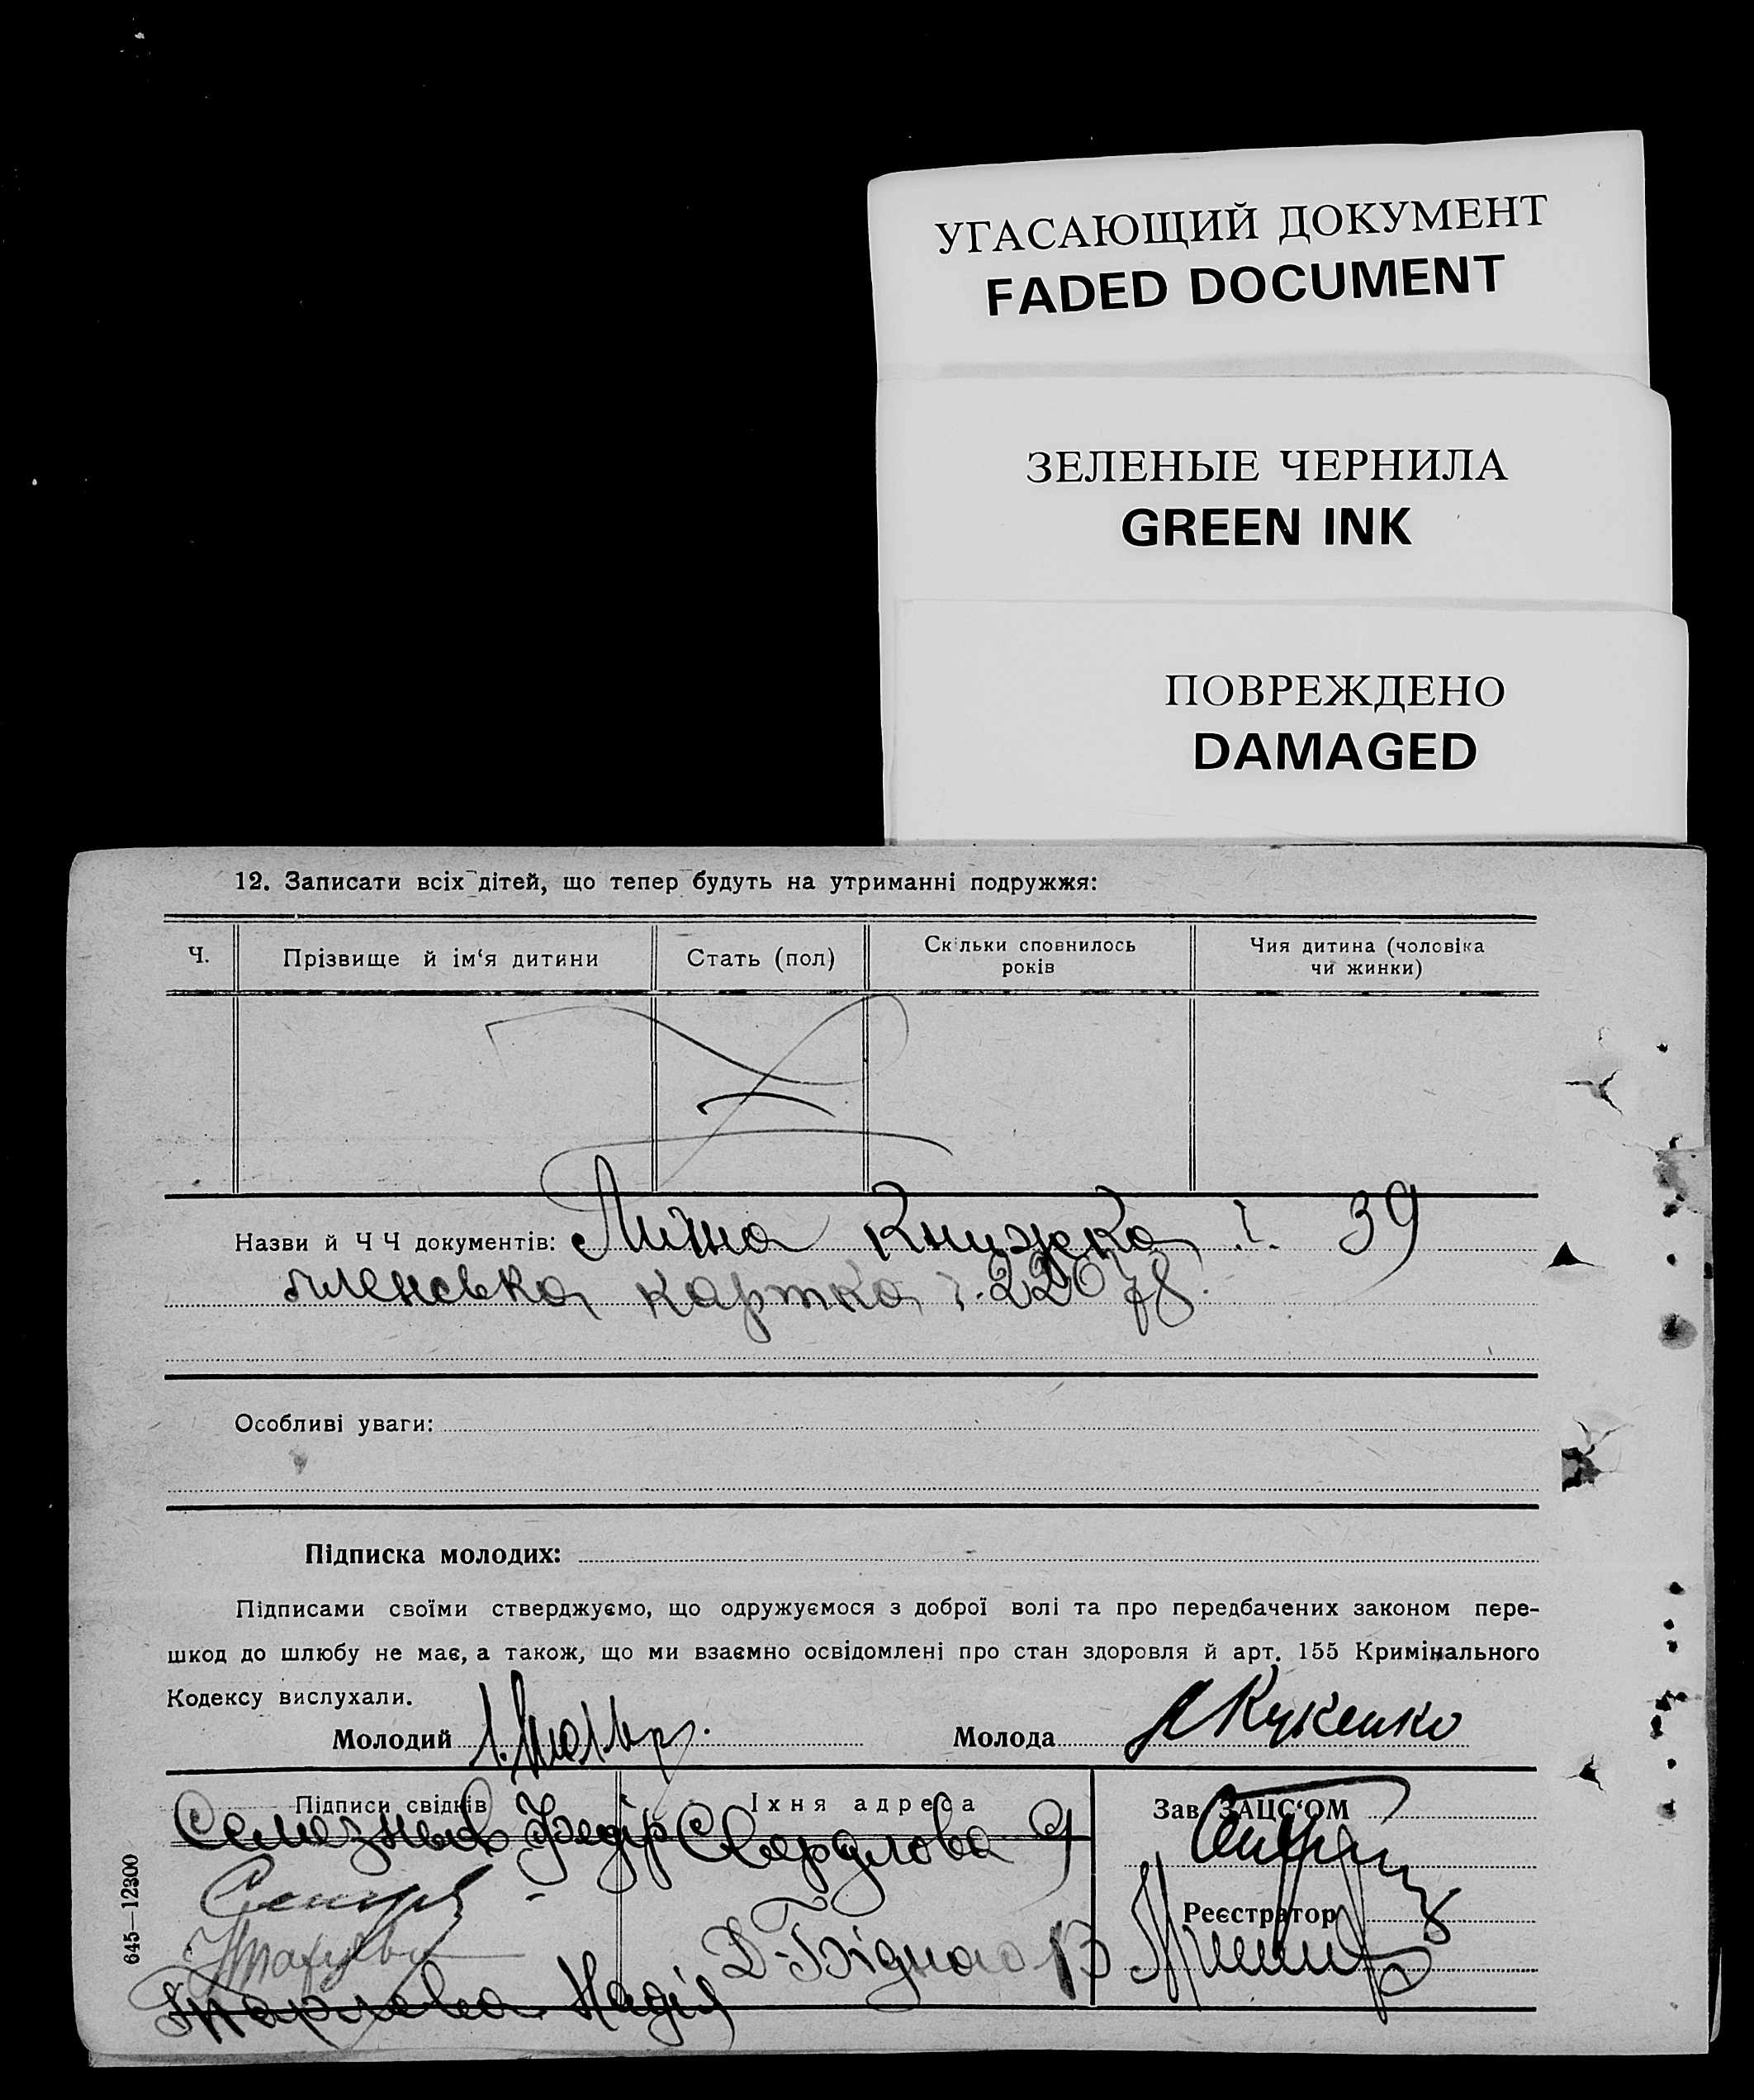 УГАСАЮЩИЙ ДОКУМЕНТ
FADED DOCUMENT
ЗЕЛЕНЫЕ ЧЕРНИЛА
GREEN INK
ПОВРЕЖДЕНО
DAMAGED
12. Записати всіх дітей, що тепер будуть на утриманні подружжя:
Ч.
Прізвище й ім‘я дитини
Стать (пол)
Скільки сповнилось
років
Чия дитина (чоловіка
чи жинки)
Назви й Ч Ч документів: книжка 39
членська картка 22678.
Особливі уваги:
Підписка молодих:
Підписами своїми стверджуємо, що одружуємося з доброї волі та про передбачених законом пере-
шкод до шлюбу не має, а також, що ми взаємно освідомлені про стан здоровля й арт. 155 Кримінального
Кодексу вислухали.
Молодий
Молода Кукенко
Підписи свідків
Їхня адреса
Федір Свердлова 9
Д-Бідного 13
Надія
Зав. ЗАЦС‘ОМ
Реєстратор
645—12300